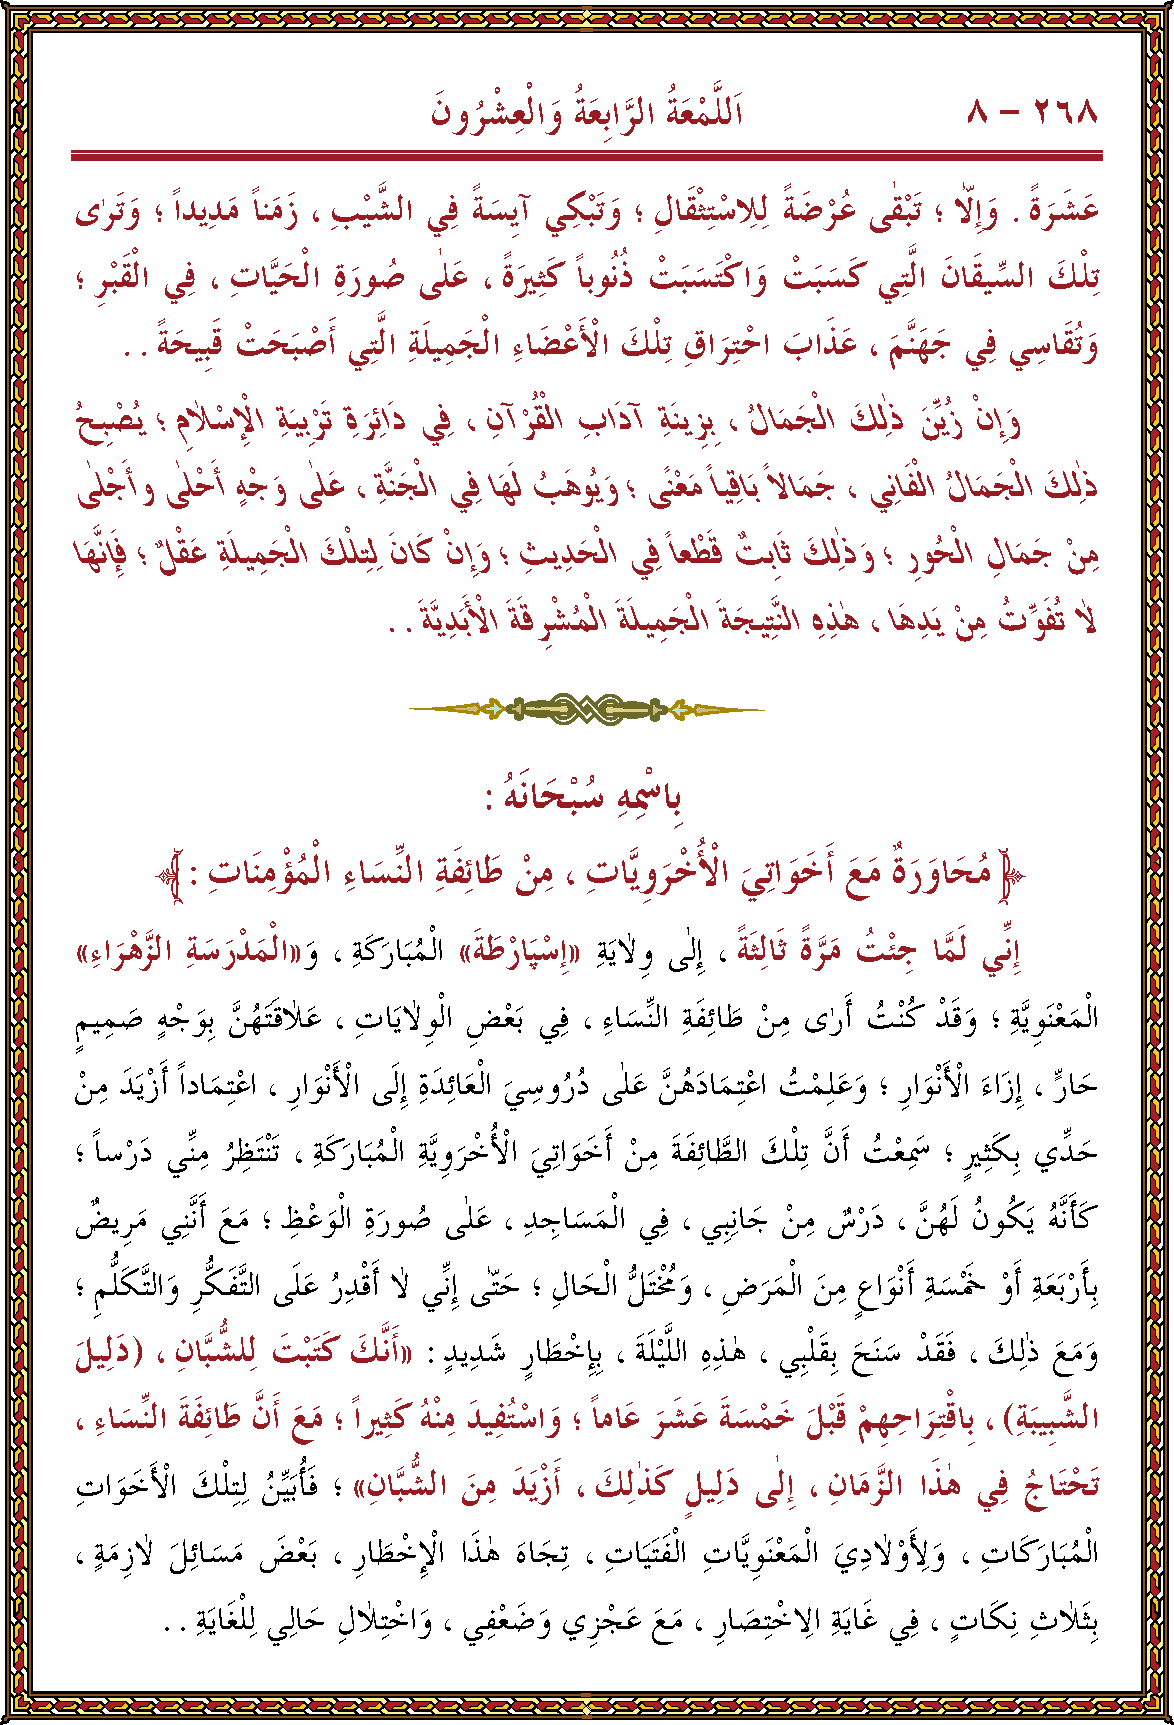 ٢٦٨ - ٨ اَللَّمْعَةُ الرَّابِعَةُ وَالْعِشْرُونَ
عَشَرَةً . وَإِلاّ ؛ تَبْقٰى عُرْضَةً لِلِاسْتِثْقَالِ ؛ وَتَبْكِي آيِسَةً فِي الشَّيْبِ ، زَمَناً مَدِيداً ؛ وَتَرٰى
تِلْكَ السِّيقَانَ الَّتِي كَسَبَتْ وَاكْتَسَبَتْ ذُنُوباً كَثِيرَةً ، عَلٰى صُورَةِ الْحَيَّاتِ ، فِي الْقَبْرِ ؛
وَتُقَاسِي فِي جَهَنَّمَ ، عَذَابَ احْتِرَاقِ تِلْكَ الْأَعْضَاءِ الْجَمِيلَةِ الَّتِي أَصْبَحَتْ قَبِيحَةً . .
وَإِنْ زُيِّنَ ذٰلِكَ الْجَمَالُ ، بِزِينَةِ آدَابِ الْقُرْآنِ ، فِي دَائِرَةِ تَرْبِيَةِ الْإِسْلاٰمِ ؛ يُصْبِحُ
ذٰلِكَ الْجَمَالُ الْفَانِي ، جَمَالاً بَاقِياً مَعْنًى ؛ وَيُوهَبُ لَهَا فِي الْجَنَّةِ ، عَلٰى وَجْهٍ أَحْلٰى وأَجْلٰى
مِنْ جَمَالِ الْحُورِ ؛ وَذٰلِكَ ثَابِتٌ قَطْعاً فِي الْحَدِيثِ ؛ وَإِنْ كَانَ لِتِلْكَ الْجَمِيلَةِ عَقْلٌ ؛ فَإِنَّهَا
لاٰ تُفَوِّتُ مِنْ يَدِهَا ، هٰذِهِ النَّتِيجَةَ الْجَمِيلَةَ الْمُشْرِقَةَ الْأَبَدِيَّةَ . .
بِاسْمِهِ سُبْحَانَهُ :
﴿مُحَاوَرَةٌ مَعَ أَخَوَاتِيَ الْأُخْرَوِيَّاتِ ، مِنْ طَائِفَةِ النِّسَاءِ الْمُؤْمِنَاتِ :﴾
إِنِّي لَمَّا جِئْتُ مَرَّةً ثَالِثَةً ، إِلٰى وِلاٰيَةِ «إِسْپَارْطَةَ» الْمُبَارَكَةِ ، وَ«الْمَدْرَسَةِ الزَّهْرَاءِ»
الْمَعْنَوِيَّةِ ؛ وَقَدْ كُنْتُ أَرٰى مِنْ طَائِفَةِ النِّسَاءِ ، فِي بَعْضِ الْوِلاٰيَاتِ ، عَلاٰقَتَهُنَّ بِوَجْهٍ صَمِيمٍ
حَارٍّ ، إِزَاءَ الْأَنْوَارِ ؛ وَعَلِمْتُ اعْتِمَادَهُنَّ عَلٰى دُرُوسِيَ الْعَائِدَةِ إِلَى الْأَنْوَارِ ، اعْتِمَاداً أَزْيَدَ مِنْ
حَدِّي بِكَثِيرٍ ؛ سَمِعْتُ أَنَّ تِلْكَ الطَّائِفَةَ مِنْ أَخَوَاتِيَ الْأُخْرَوِيَّةِ الْمُبَارَكَةِ ، تَنْتَظِرُ مِنِّي دَرْساً ؛
كَأَنَّهُ يَكُونُ لَهُنَّ ، دَرْسٌ مِنْ جَانِبِي ، فِي الْمَسَاجِدِ ، عَلٰى صُورَةِ الْوَعْظِ ؛ مَعَ أَنَّنِي مَرِيضٌ
بِأَرْبَعَةِ أَوْ خَمْسَةِ أَنْوَاعٍ مِنَ الْمَرَضِ ، وَمُخْتَلُّ الْحَالِ ؛ حَتّٰى إِنِّي لاٰ أَقْدِرُ عَلَى التَّفَكُّرِ وَالتَّكَلُّمِ ؛
وَمَعَ ذٰلِكَ ، فَقَدْ سَنَحَ بِقَلْبِي ، هٰذِهِ اللَّيْلَةَ ، بِإِخْطَارٍ شَدِيدٍ : «أَنَّكَ كَتَبْتَ لِلشُّبَّانِ ، (دَلِيلَ
الشَّبِيبَةِ) ، بِاقْتِرَاحِهِمْ قَبْلَ خَمْسَةَ عَشَرَ عَاماً ؛ وَاسْتُفِيدَ مِنْهُ كَثِيراً ؛ مَعَ أَنَّ طَائِفَةَ النِّسَاءِ ،
تَحْتَاجُ فِي هٰذَا الزَّمَانِ ، إِلٰى دَلِيلٍ كَذٰلِكَ ، أَزْيَدَ مِنَ الشُّبَّانِ» ؛ فَأُبَيِّنُ لِتِلْكَ الْأَخَوَاتِ
الْمُبَارَكَاتِ ، وَلِأَوْلاٰدِيَ الْمَعْنَوِيَّاتِ الْفَتَيَاتِ ، تِجَاهَ هٰذَا الْإِخْطَارِ ، بَعْضَ مَسَائِلَ لاٰزِمَةٍ ،
بِثَلاٰثِ نِكَاتٍ ، فِي غَايَةِ الِاخْتِصَارِ ، مَعَ عَجْزِي وَضَعْفِي ، وَاخْتِلاٰلِ حَالِي لِلْغَايَةِ . .